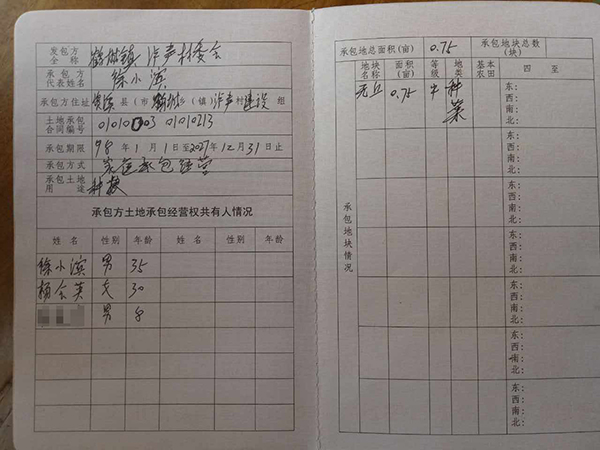 发包方全称 鹤林镇 浐声村委会
承包方代表姓名 徐小滨
承包方住址 县(市 (镇)浐声村建设组
土地承包合同编号 01010003 01010213
承包期限 98年1月1日至2027年12月31日止
承包方式 家庭承包经营
承包土地用途 种植
承包方土地承包经营权共有人情况
姓名 性别 年龄 姓名 性别 年龄
徐小滨 男 35
杨会英 女 30
男 8
承包地总面积(亩) 0.75 承包地块总数(块)
地块名称 面积(亩) 等级 地类 基本农田 四至
0.75 种菜 东:
西:
南:
北:
承包地块情况
东:
西:
南:
北:
东:
西:
南:
北:
东:
西:
南:
北:
东:
西:
南:
北: